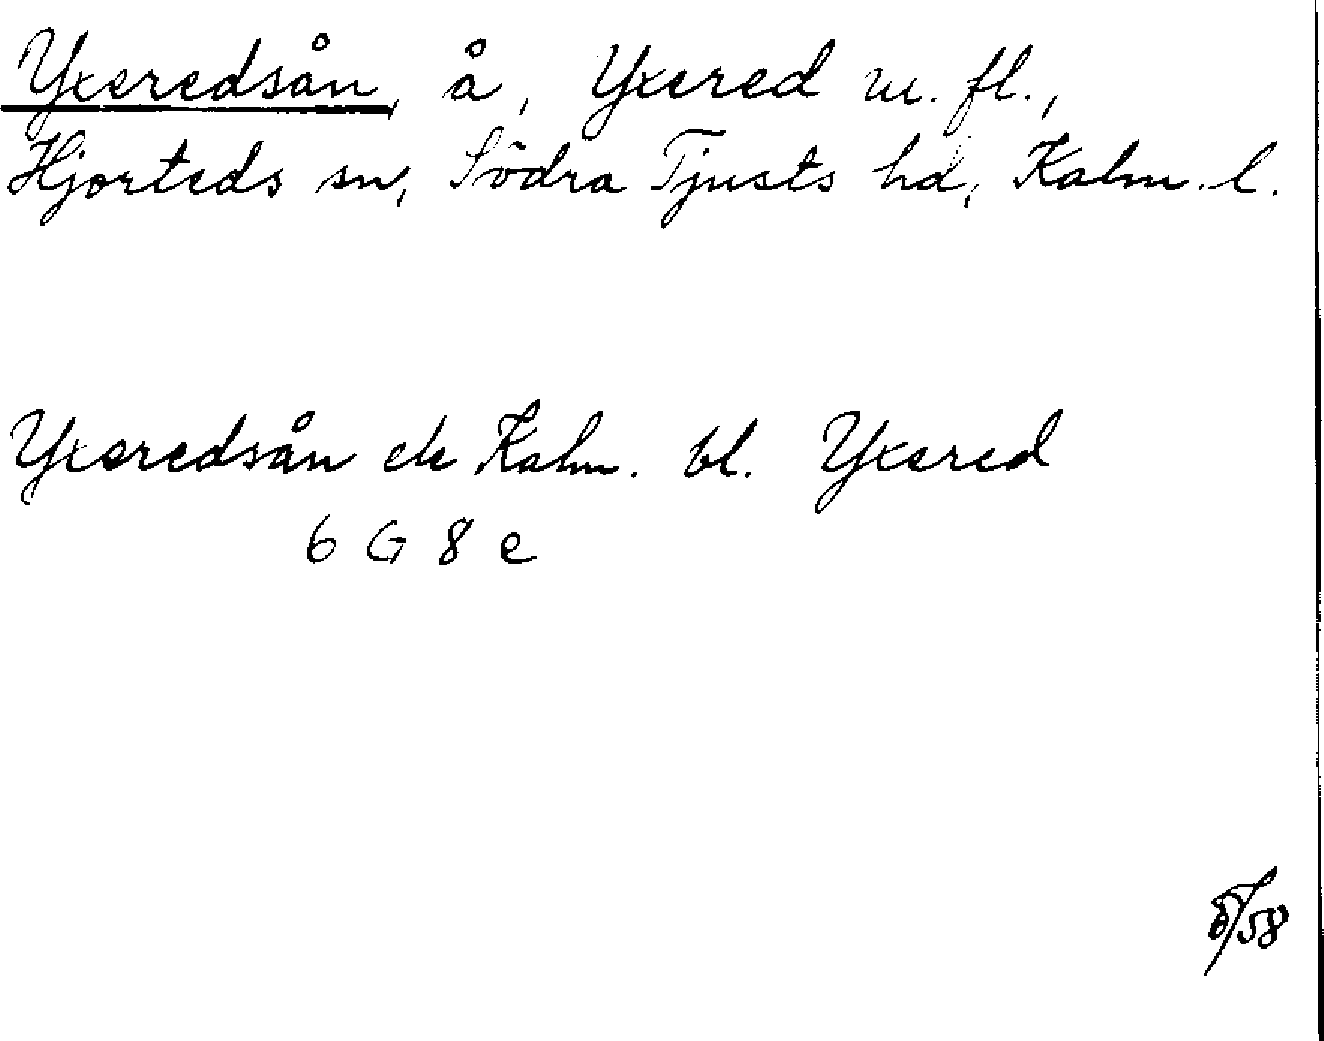 Yxeredsån, å, Yxered m. fl.,
Hjorteds sn, Södra Tjusts hd, Kalm. l.
Yxeredsån ek Kalm. bl. Yxered
6 G 8 e
8/58